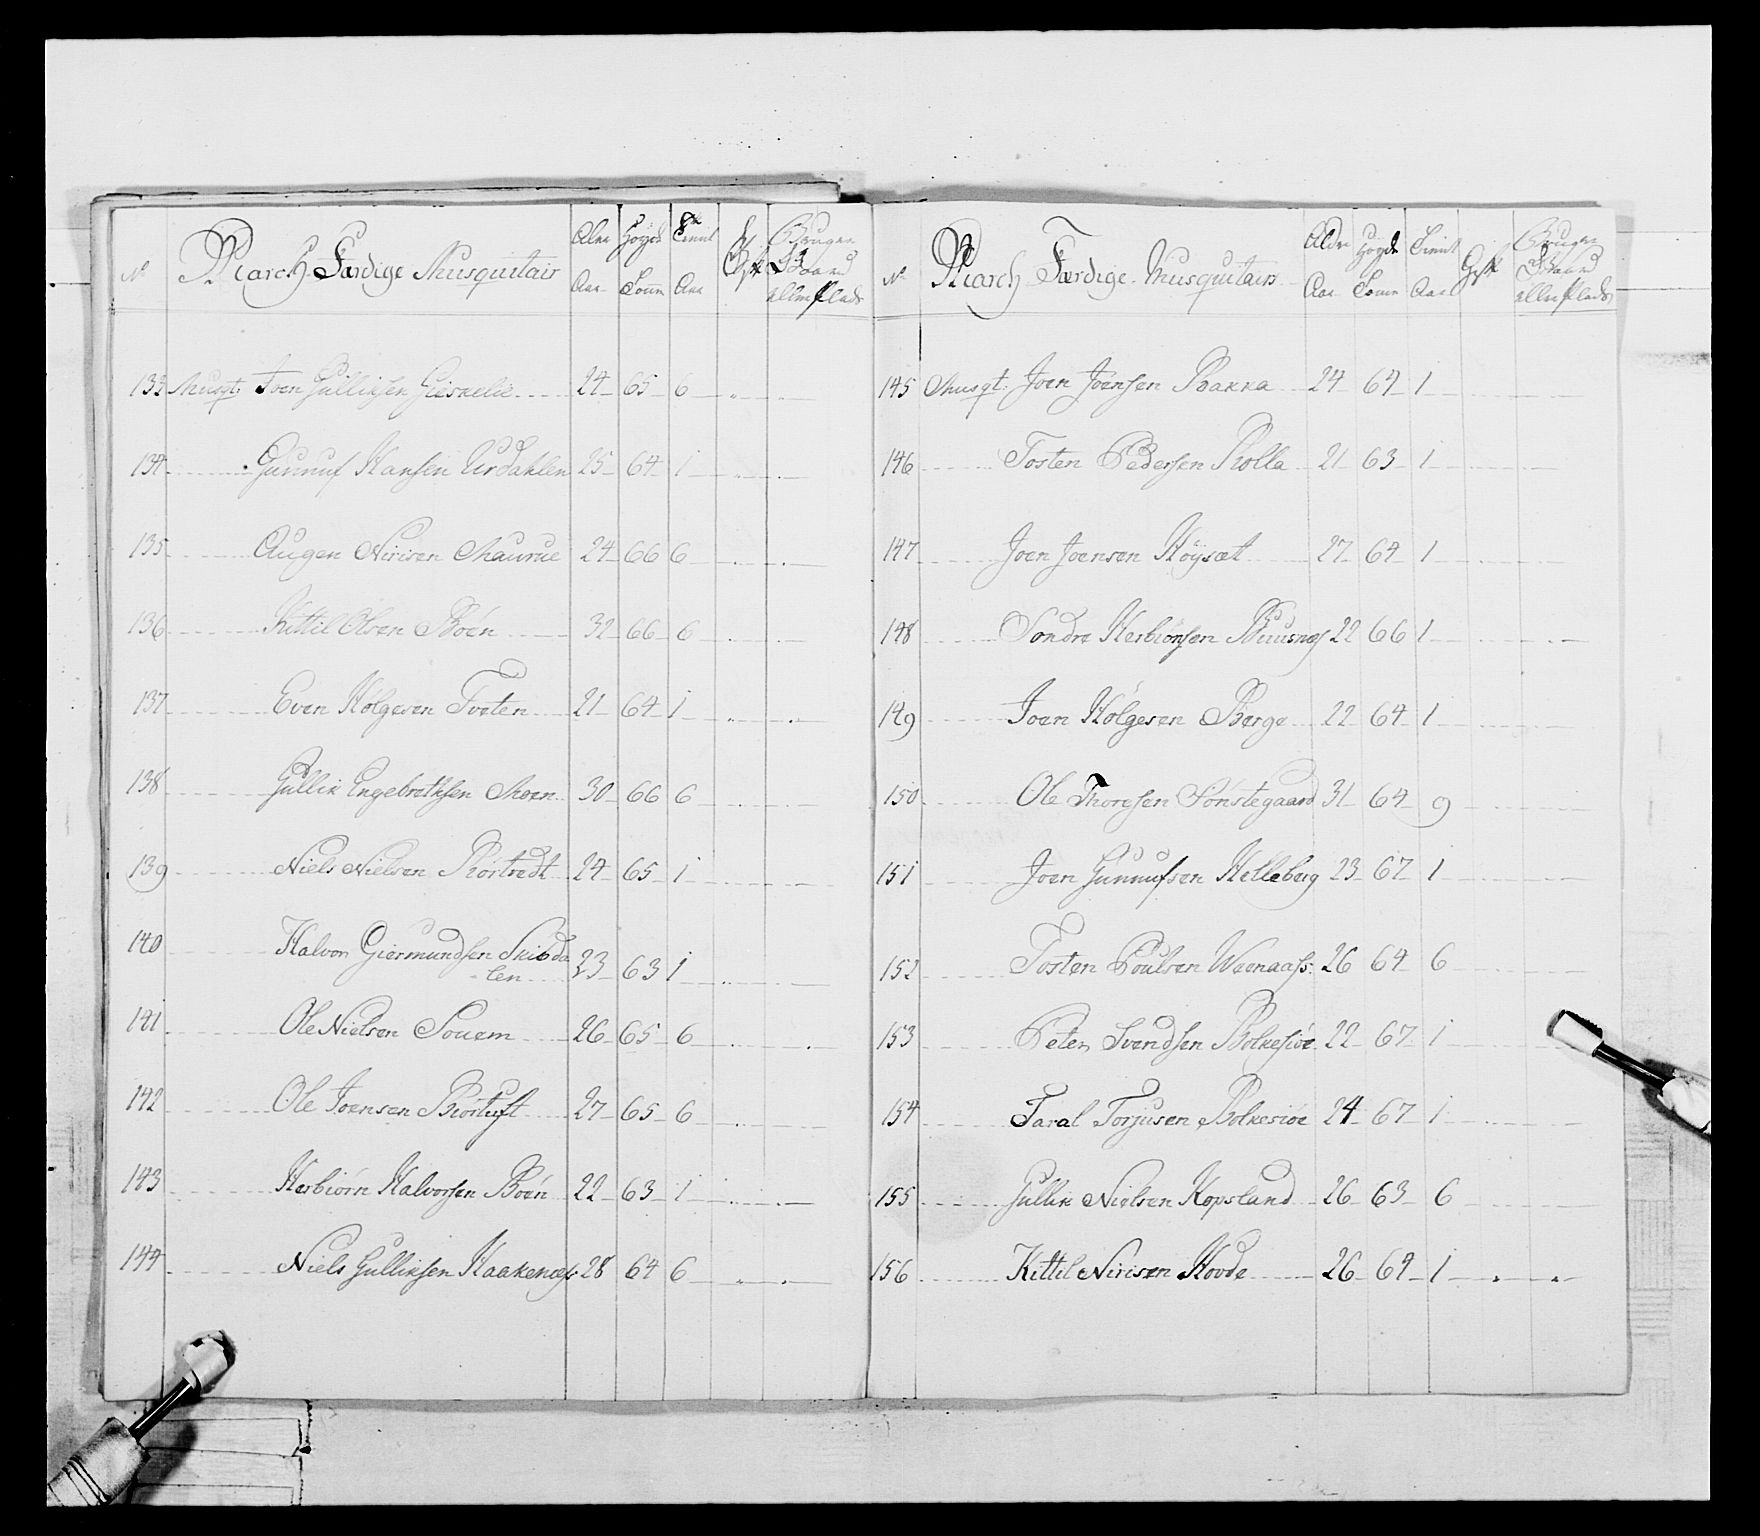 No March Færdige Musquitairs Alder Aar Høyde Tomr Tient Aar Gift Bruger Gaard eller Plads
133 Musqt: Joen Gulliksen 24 65 6
134 Gunnuf Hansen Urdahlen 25 64 1
135 Augen Nirisen Maurue 24 66 6
136 Kittil Olsen Boén 32 66 6
137 Even Hølgesen Tveten 21 64 1
138 Gullik Engebrethsen Moen 30 66 6
139 Niels Nielsen 24 65 1
140 Halvor Giermundsen Skibda
len 23 63 1
141 Ole Nielsen Souem 26 65 6
142 Ole Joensen Biørtuft 27 65 6
143 Herbiørn Halvorsen Boén 22 63 1
144 Niels Gulliksen Haakenæs 28 64 6
No March Færdige Musquitairs Alder Aar Høyde Tomr Tient Aar Gift Bruger Gaard eller Plads
145 Musqt: Joen Joensen Bakka 24 64 1
146 Tosten Pedersen Rolla 21 63 1
147 Joen Joensen Høysæt 27 64 1
148 Sondre Herbiønsen Buusnes 22 66 1
149 Joen Hølgesen Berge 22 64 1
150 Ole Thoresen Sønstegaard 31 64 9
151 Joen Gunnufsen Helleberg 23 67 1
152 Tosten Poulsen 26 64 6
153 Peter Svendsen Bolkesiøe 22 67 1
154 Taral Torjusen Bolkesiøe 24 67 1
155 Gullik Nielsen Kopsland 26 63 6
156 Kittil Nirisen Hovde 26 64 1